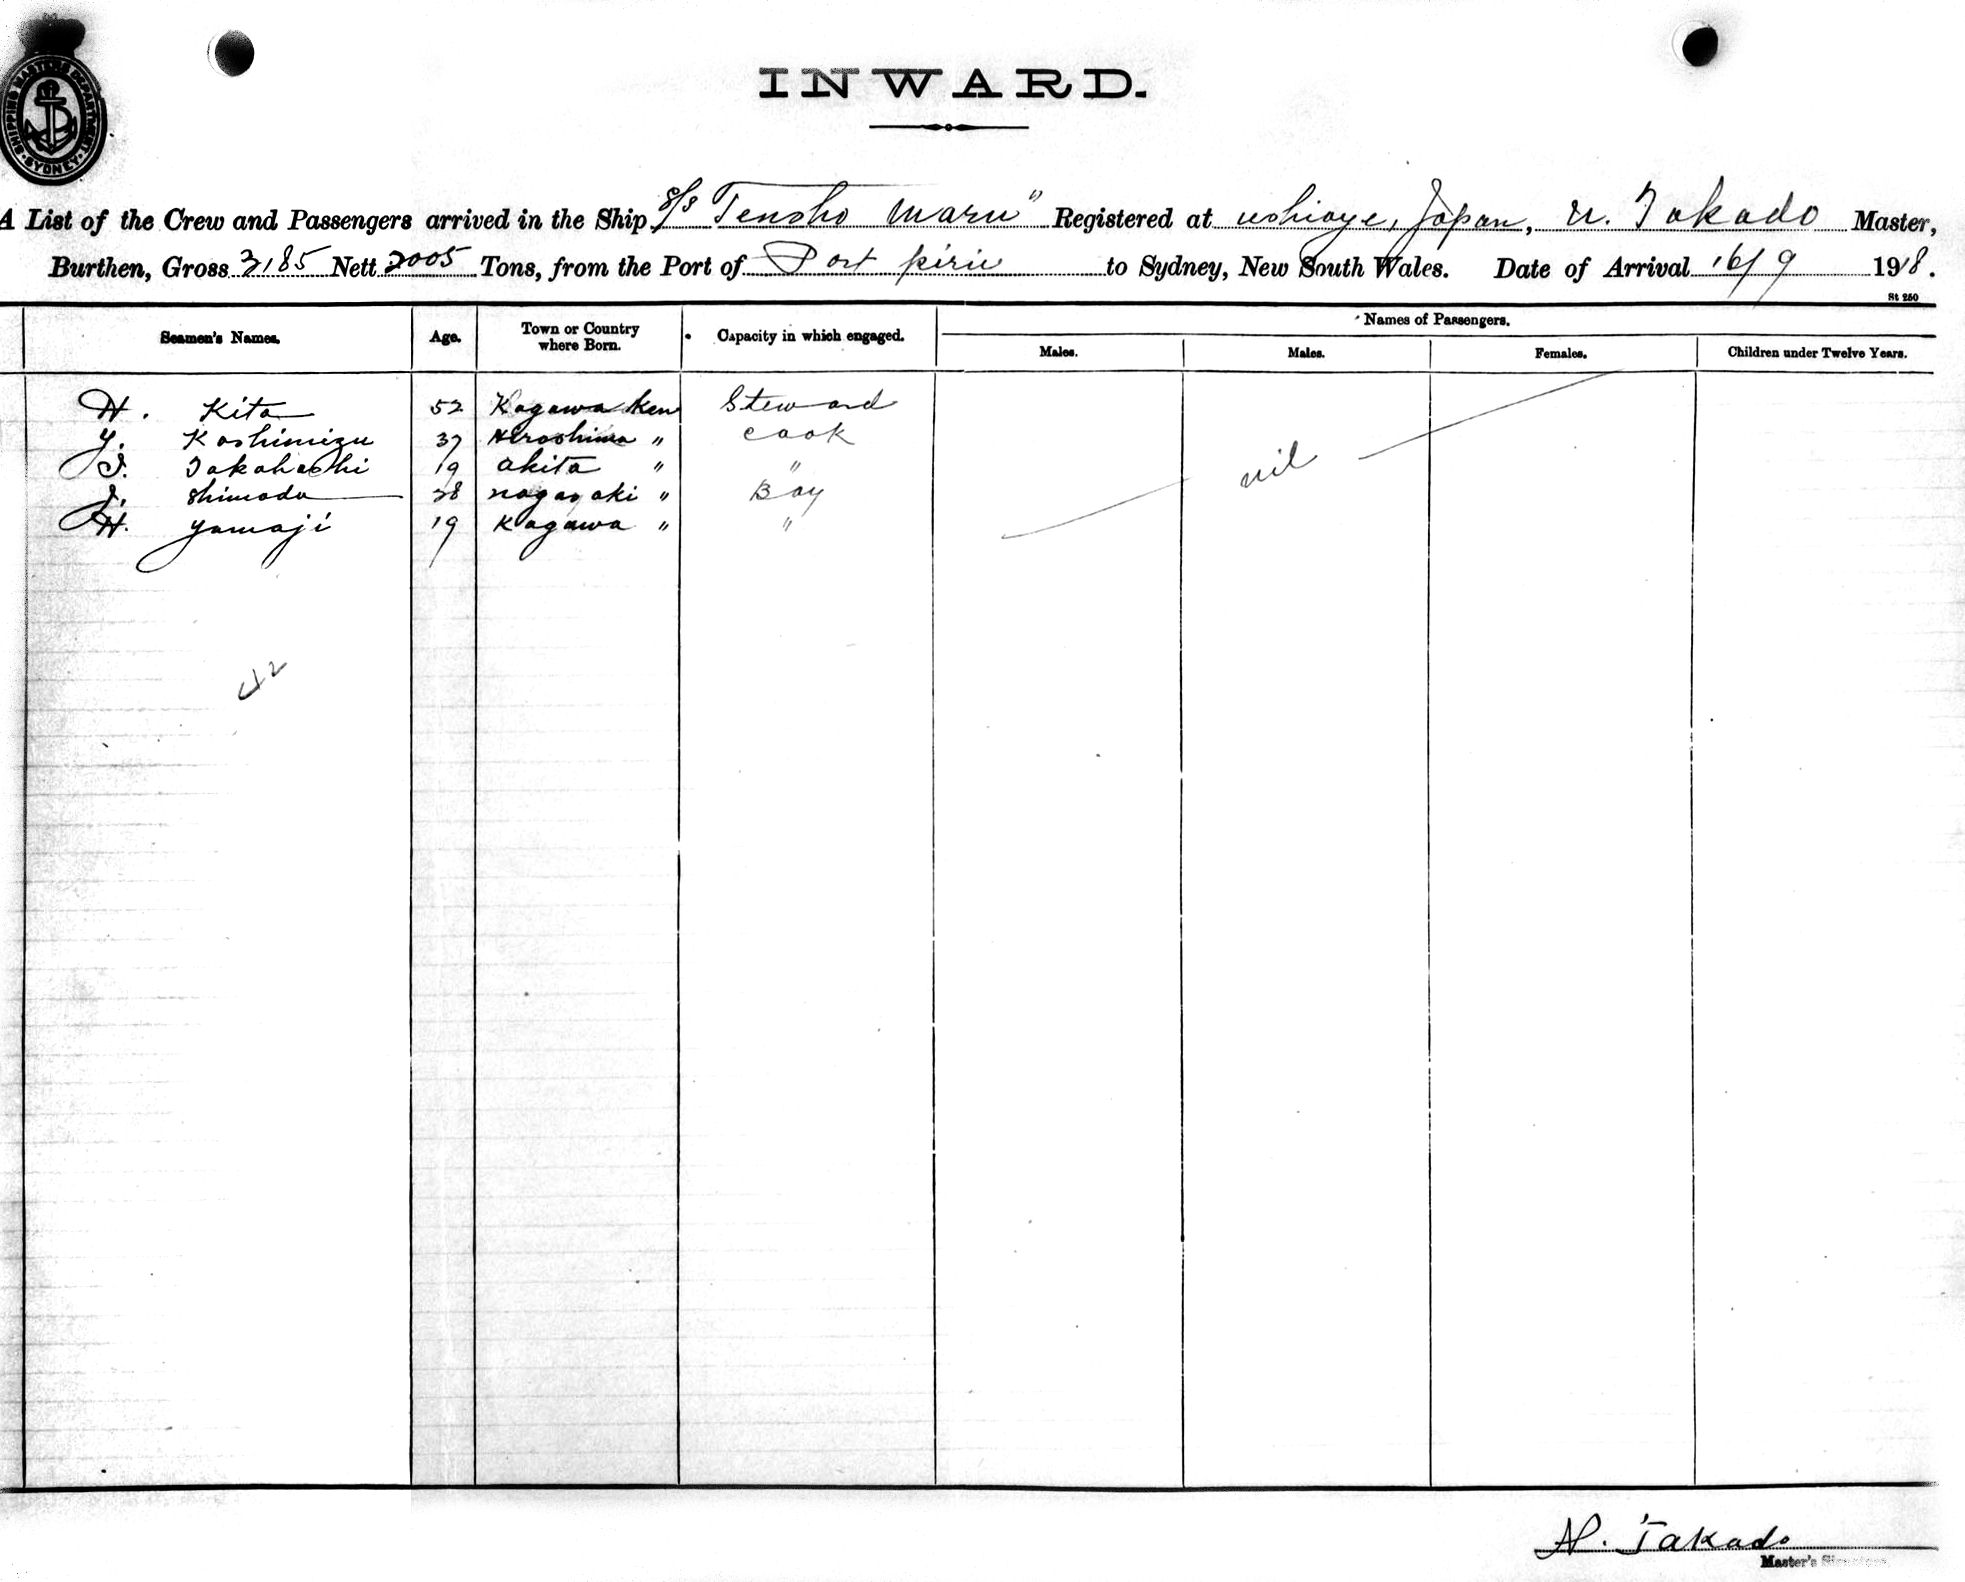 SHIPPING MASTERS DEPARTMENT
SYDNEY
INWARD.
A List of the Crew and Passengers arrived in the Ship S/S "Tensho Maru" Registered at ushioye, Japan, N. Takado Master,
Burthen, Gross 3185 Nett 2005 Tons, from the Port of Port pirie to Sydney, New South Wales. Date of Arrival 16/9 1918.
St 250
Seamen's Names. Age. Town or Country where Born. Capacity in which engaged. Names of Passengers.
Males. Males. Females. Children under Twelve Years.
H. Kita 52 Kagawa Ken Steward
Y. Koshimizu 37 Hiroshima " Cook
Takahashi 19 akita " "
Shimada 28 nagasaki " Boy
H. yamaji 19 Kagawa " "
nil
42
N. Takado
Master's Signature